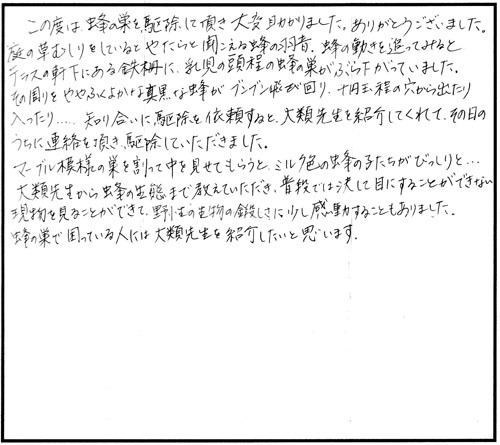 この度は蜂の巣を駆除して頂き大変助かりました。ありがとうございました。
庭の草むしりをしているとやたらと聞こえる蜂の羽音。蜂の動きを追ってみると
テラスの軒下にある鉄柵に、乳児の頭程の蜂の巣がぶら下がっていました。
その周りをややふくよかな真黒な蜂がブンブン飛び回り、十円玉程の穴から出たり
入ったり…..知り合いに駆除を依頼すると、大類先生を紹介してくれて、その日の
うちに連絡を頂き、駆除していただきました。
マーブル模様の巣を割って中を見せてもらうと、ミルク色の蜂の子たちがびっしりと…
大類先生から蜂の生態まで教えていただき、普段では決して目にすることができない
現物を見ることができて、野生の生物の厳しさに少し感動することもありました。
蜂の巣で困っている人には大類先生を紹介したいと思います。